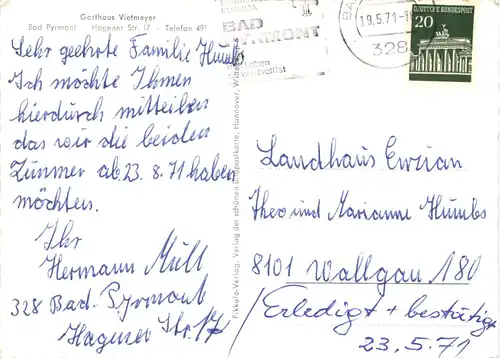 Gasthaus Vietmeyer
Bad Pyrmont Hagener Str. 17 - Telefon 491
Sehr geehrte Familie Humbs
Ich möchte Ihnen
hierdurch mitteilen
das wir die beiden
Zimmer ab 23. 8. 71 haben
möchten.
Ihr
Hermann Müll
328 Bad. Pyrmont
Hagener Str. 17
BAD
PYRMONT
19.5.71
328
20
DEUTSCHE BUNDESPOST
Landhaus Enzian
Theo und Marianne Humbs
8101 Wallgau 180
Erledigt + bestätigt
23.5.71